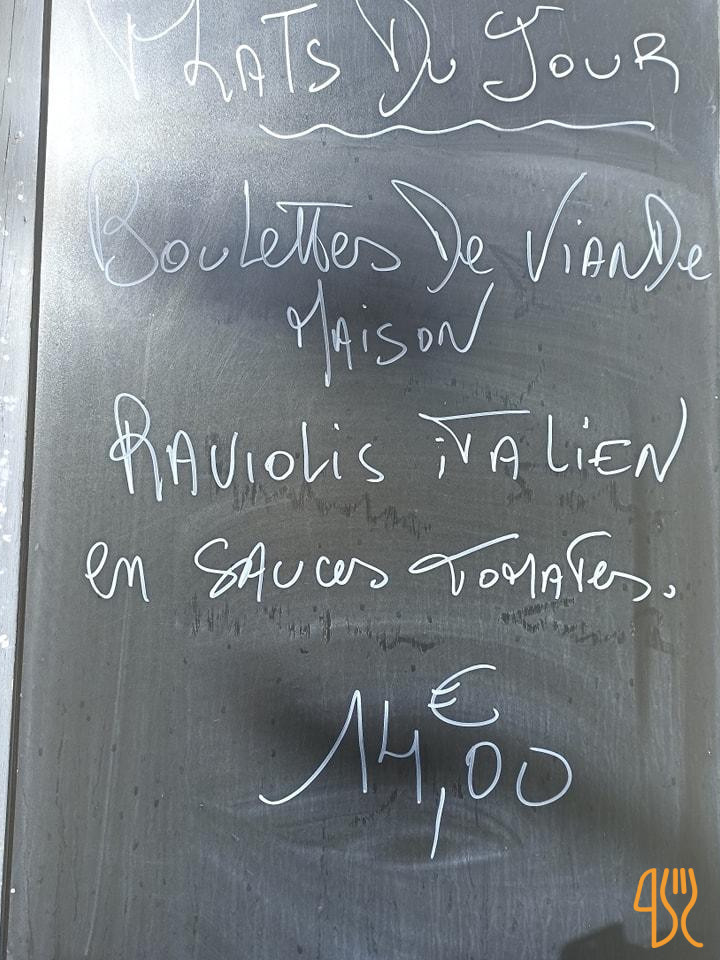 PLATS DU JOUR
BouLettes De ViANDe
MAiSON
RAViOLiS iTALiEN
en SAuces TOMATes.
14,€00